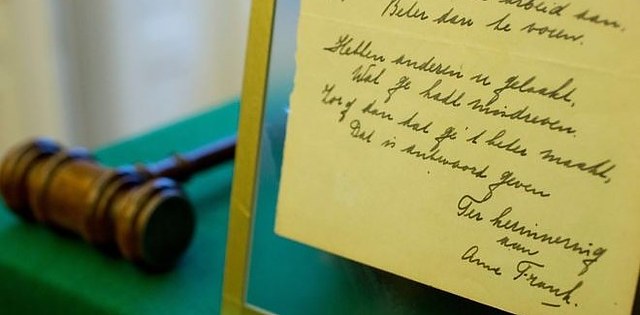 arbeid aan.
Beter dan te voren.
Hebben anderen u gelaakt,
Wat ge hadt misdreven.
Zorg dan dat ge 't beter maakt,
Dat is antwoord geven
Ter herinnering
aan
Anne Frank.